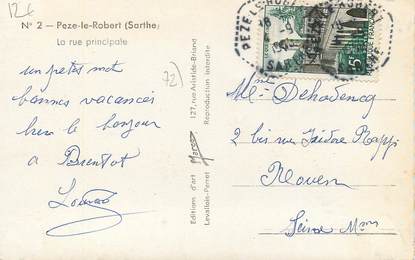 12€
N° 2 - Peze-le-Robert (Sarthe)
La rue principale
un petit mot
bonnes vacances
le bonjour
a Bientot
72)
Editions d'art
Levallois-Perret
127, rue Aristide-Briand
Reproduction interdite
PEZE-LE-ROBERT
SARTHE
5F
Mme Dehodencq
2 bis rue Isidore Rapp
Rouen
Seine Mme